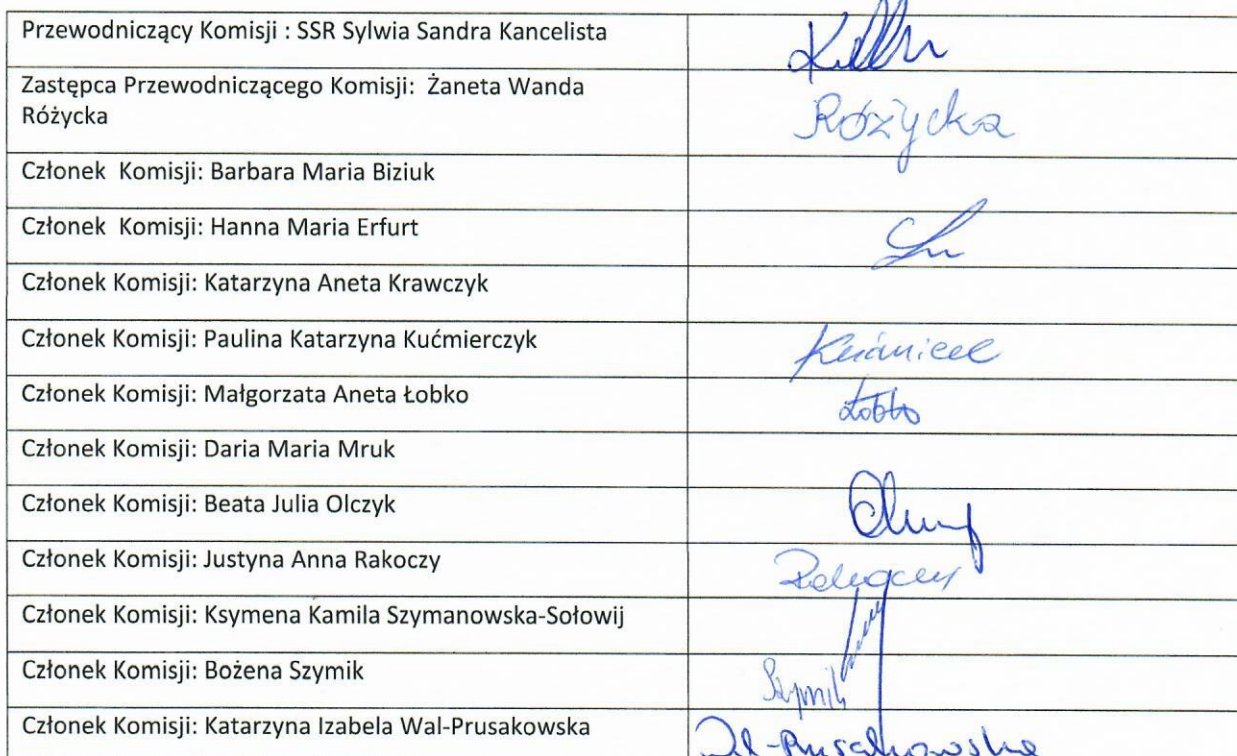 Przewodniczący Komisji : SSR Sylwia Sandra Kancelista
Zastępca Przewodniczącego Komisji: Żaneta Wanda
Różycka
Różycka
Członek Komisji: Barbara Maria Biziuk
Członek Komisji: Hanna Maria Erfurt
Członek Komisji: Katarzyna Aneta Krawczyk
Członek Komisji: Paulina Katarzyna Kućmierczyk
Członek Komisji: Małgorzata Aneta Łobko
Łobko
Członek Komisji: Daria Maria Mruk
Członek Komisji: Beata Julia Olczyk
Członek Komisji: Justyna Anna Rakoczy
Członek Komisji: Ksymena Kamila Szymanowska-Sołowij
Członek Komisji: Bożena Szymik
Szymik
Członek Komisji: Katarzyna Izabela Wal-Prusakowska
Wal-Prusakowska